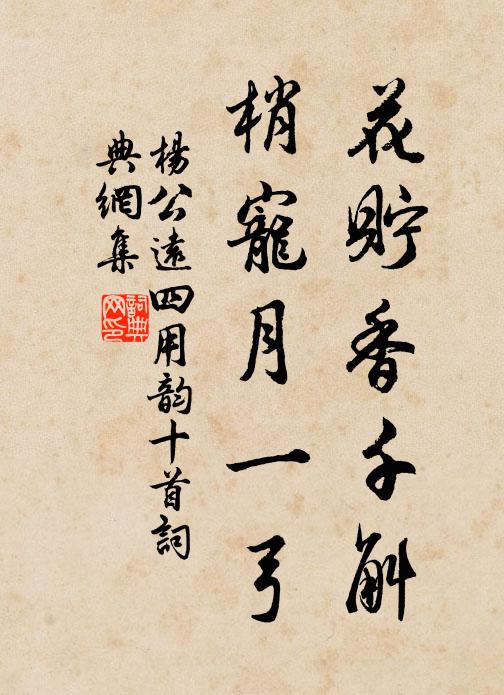 花貯香千斛
梢寵月一弓
楊公遠四用韵十首詞
典網集
詞典网印